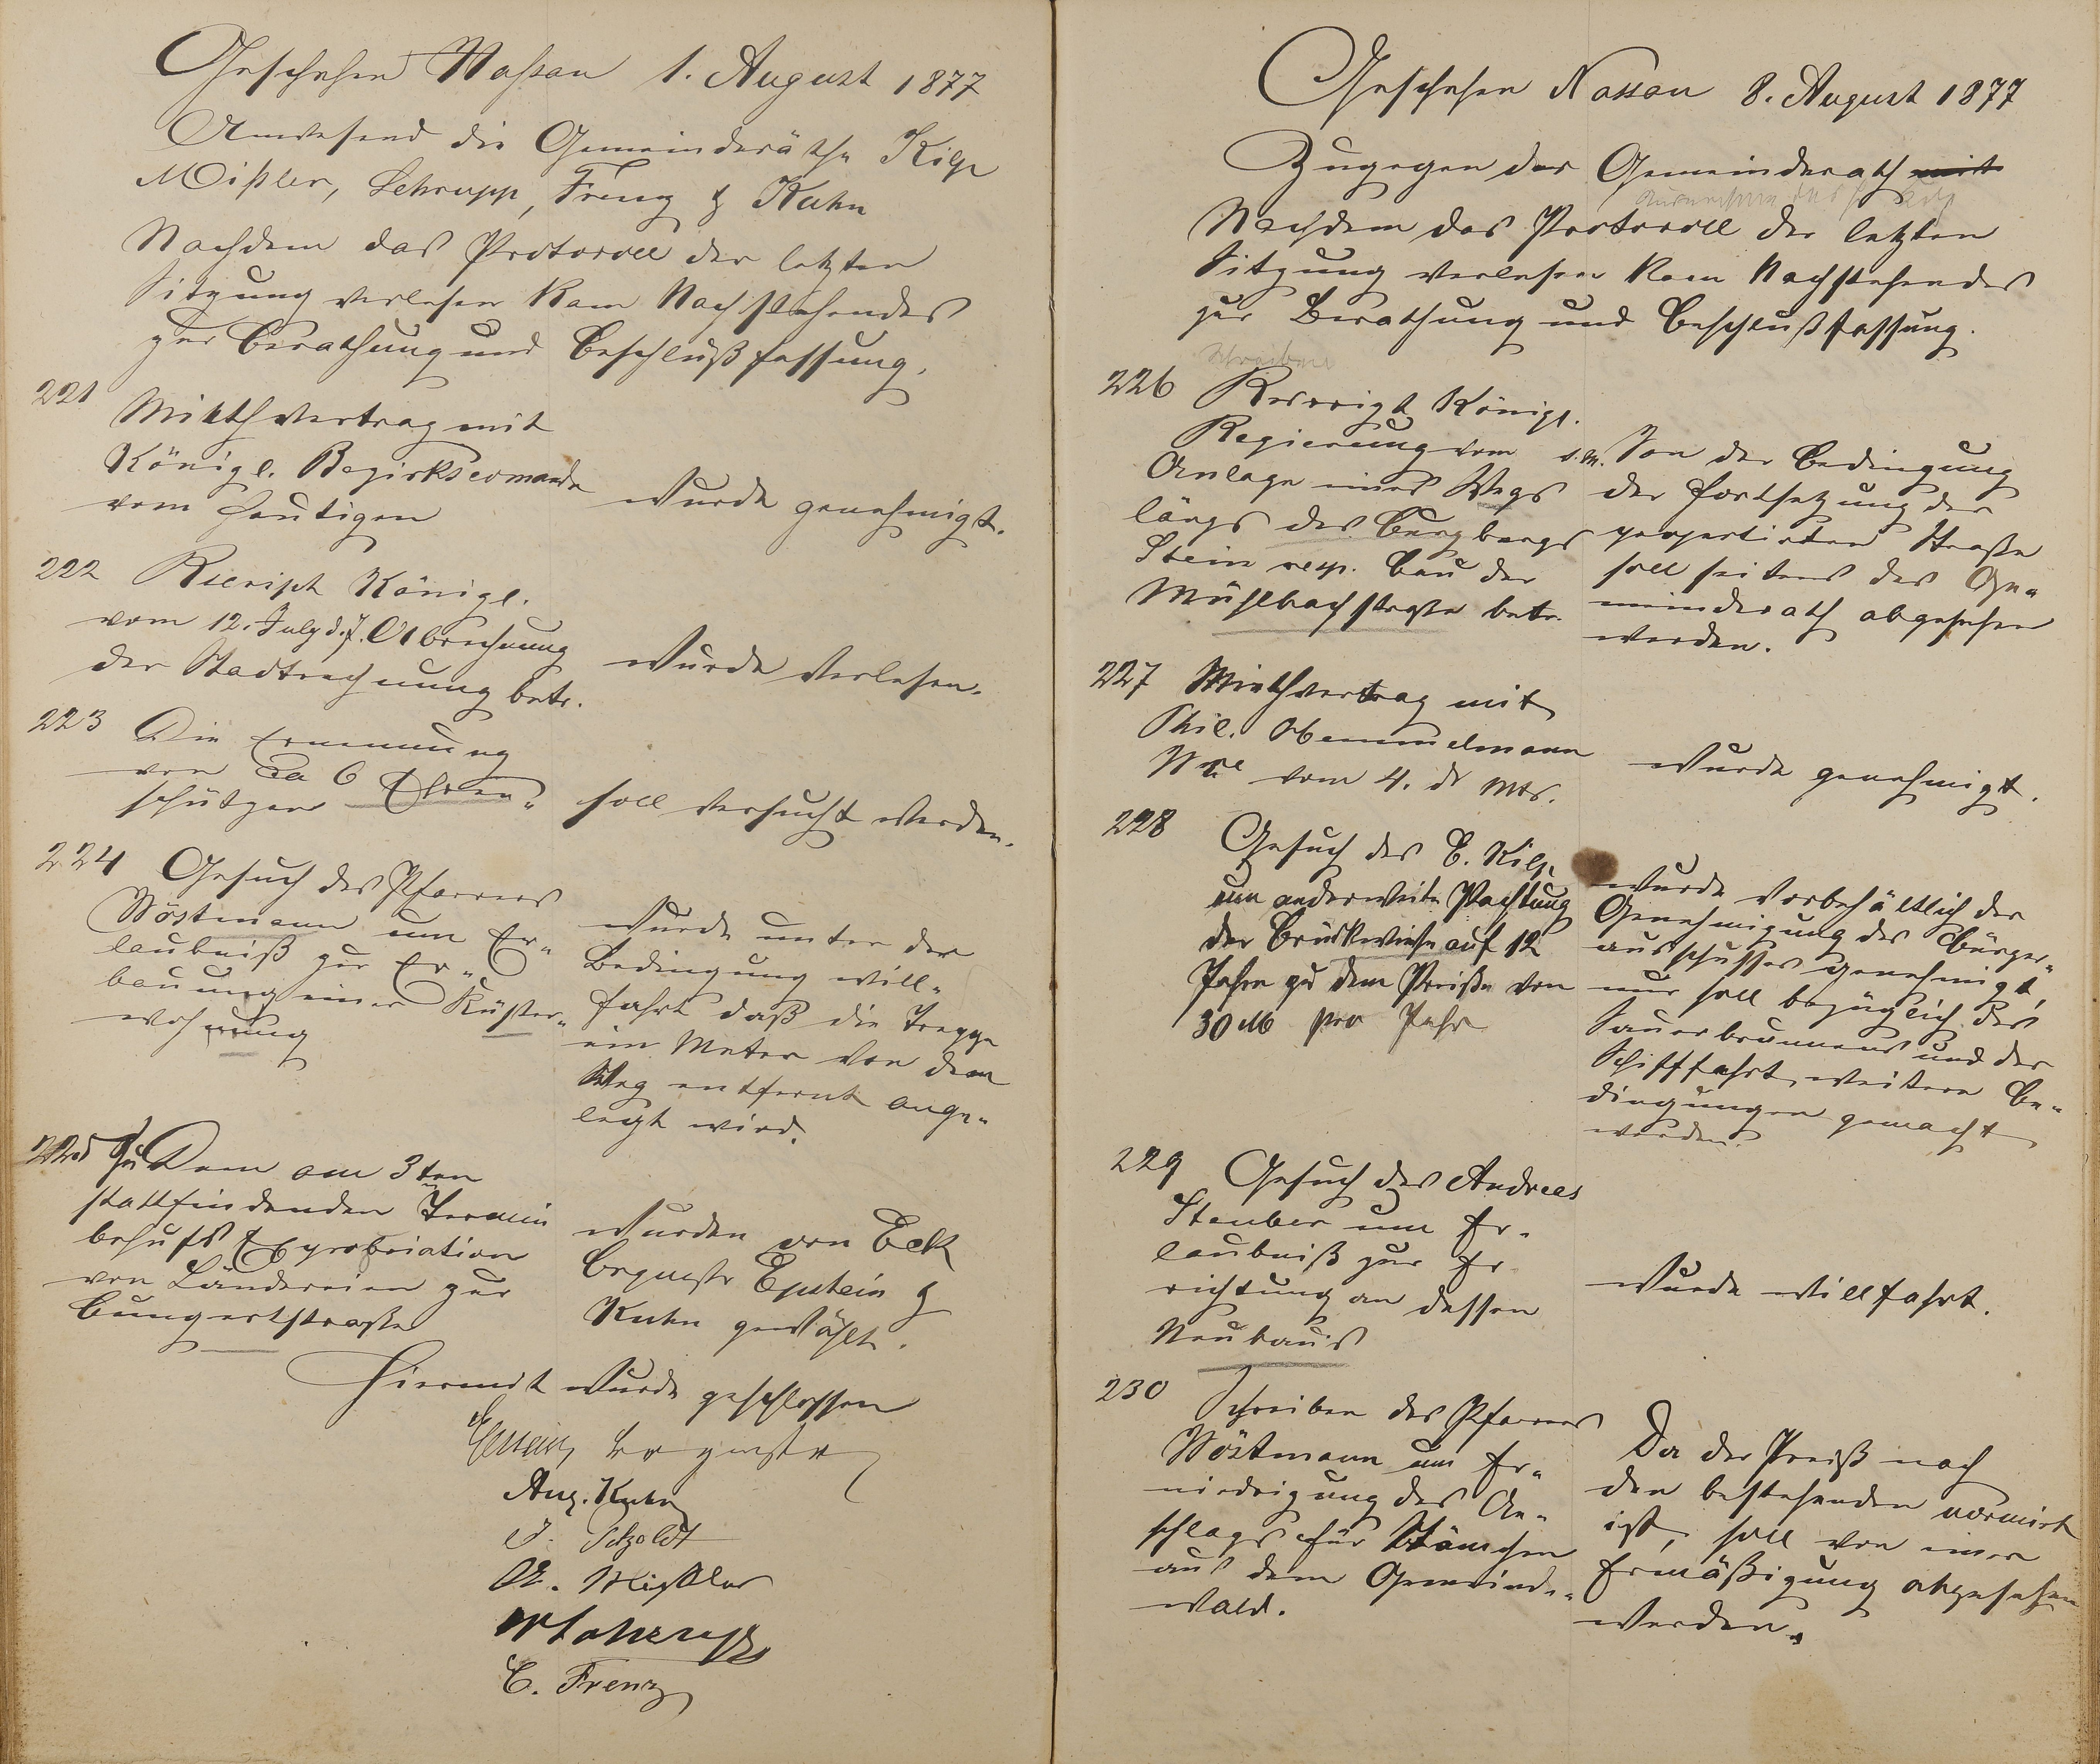 Geschehen Nassau 1. August 1877
Anwesend die Gemeinderäthe Kilp
Mißler, Schrupp, Frenz & Kuhn
Nachdem das Protocoll der letzten
Sitzung verlesen kam Nachstehendes
zur Berathung und Beschlußfassung.
221 Miethvertrag mit
Königl. Bezirkscomando
vom heutigen
wurde genehmigt.
222 Rescript Königl.
vom 12. July d. J. Abrechnung
der Stadtrechnung betr.
wurde verlesen.
223 Die Ernennung
von ca 6 Ehren-
schützen
soll versucht werden.
224 Gesuch des Pfarrers
Wöstmann um Er-
laubniß zur Er-
bauung einer Küster-
wohnung
wurde unter der
Bedingung will-
fahrt daß die Treppe
ein Meter von dem
Weg entfernt ange-
legt wird.
225 Zu Dem am 3ten
stattfindenden Termin
behufs Exprobriation
von Ländereien zur
Bungertstraße
wurden von Eck
Brgmstr Epstein &
Kuhn gewählt.
Hiermit wurde geschlossen
Epstein, Brgmstr
Aug. Kuhn
J. Petzoldt
A. Mißler
W Schrupp
C. Frenz
Geschehen Nassau 8. August 1877
Zugegen der Gemeinderath mit
Ausnahme des H Kilp
Nachdem das Protocoll der letzten
Sitzung verlesen kam Nachstehendes
zur Berathung und Beschlußfassung.
Schreiben
226 Rescript Königl.
Regierung vom v. M.
Anlage eines Wegs
längs des Burgbergs
Stein resp. Bau der
Mühlbachstraße betr.
Von der Bedingung
der Fortsetzung der
projectirten Straße
soll seitens des Ge-
meinderath abgesehen
werden.
227 Miethvertrag mit
Phil.
vom 4. ds Mts.
wurde genehmigt.
228 Gesuch des C. Kilp
um anderweite Pachtung
der Brückwiese auf 12
Jahre zu dem Preiße von
30 M pro Jahr
wurde vorbehältlich der
Genehmigung des Bürger-
ausschusses genehmigt,
nur soll bezüglich des
Sauerbrunnens und der
Schifffahrt weitere Be-
dingungen gemacht
werden.
229 Gesuch des Andreas
Stauber um Er-
laubniß zur Er-
richtung an dessen
Neubaus
wurde willfahrt.
230 Schreiben des Pfarrers
Wöstmann um Er-
niedrigung des An-
schlags für Stämchen
aus dem Gemeinde-
wald.
Da der Preiß nach
den bestehenden normirt
ist, soll von einer
Ermäßigung abgesehen
werden.